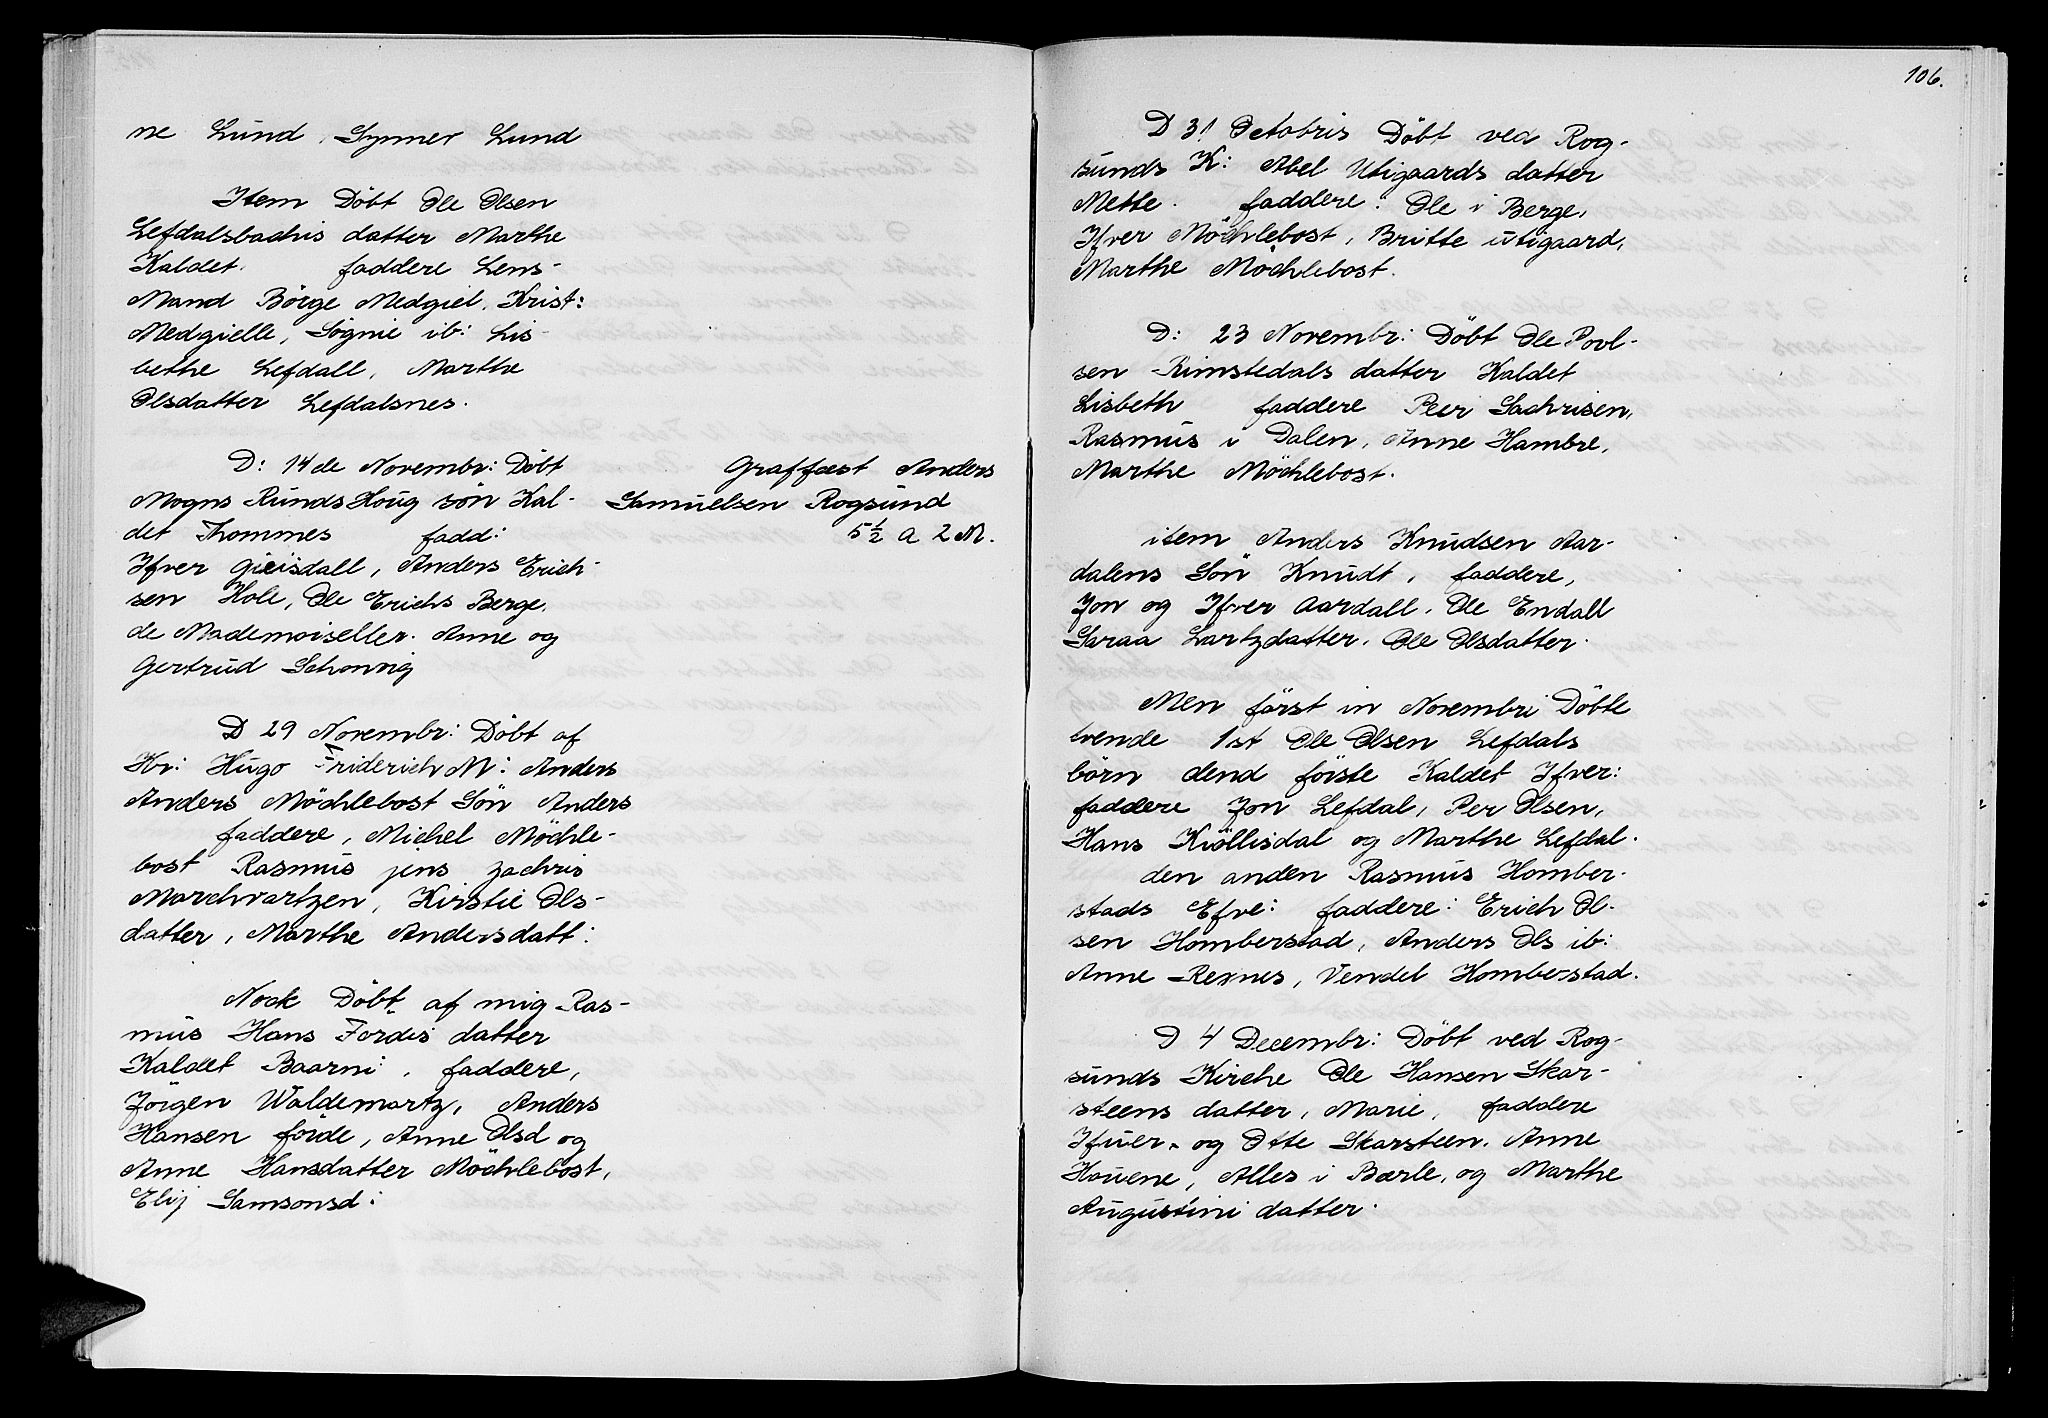 ne Lund, Synner Lund
Item Döbt Ole Olsen
Lefdalsbachis datter Marthe
Kaldet. faddere Lens-
Mand Börge Medgiel, Krist:
Medgielle, Sognie ib: Lis-
bethe Lefdall, Marthe
Olsdatter Lefdalsnes.
D: 14de Novembr: Döbt
Mogns RundsHoug sön Kal-
det Thommes fadd:
Ifver gieisdall, Anders Erich-
sen Hole, Ole Erichs Berge,
de Mademoiseller. Anne og
Gertrud Schonvig
Graffæst Anders
Samuelsen Rogsund
5½ a 2 M.
D 29 Novembr: Döbt af
Hr: Hugo Friderich M: Anders
Anders Möchlebost Sön Anders
faddere, Michel Möchle-
bost Rasmus jens zachris
Marchvartzen, Kirstie Ols-
datter, Marthe Andersdatt:
Nock Döbt af mig Ras-
mus Hans Fordis datter
Kaldet Baarni, faddere,
Jörgen Woldemartz, Anders
Hansen förde, Anne Olsd og
Anne Hansdatter Möchlebost,
Elij Samsonsd:
106.
D 31 Octobris Döbt ved Rog-
sunds K: Abel Utigaards datter
Mette. faddere: Ole i Berge,
Ifver Möchlebost, Britte utigaard,
Marthe Möchlebost.
D: 23 Novembr: Döbt Ole Povl-
sen Rimstedals datter Kaldet
Lisbeth faddere Peer Sachrisen,
Rasmus i Dalen, Anne Hambre,
Marthe Möchlebost.
item Anders Knudsen Aar-
dalens Sön Knudt, faddere,
Jon og Ifver Aardall, Ole Endall
Saraa Lartzdatter, Ole Olsdatter.
Men först in Novembri Döbte
tvende 1st Ole Olsen Lefdals
börn dend förste Kaldet Ifver:
faddere Jon Lefdal, Per Olsen,
Hans Kiöllisdal og Marthe Lefdal.
den anden Rasmus Homber-
stads Efve: faddere: Erich Ol-
sen Homberstad, Anders Ols ib:
Anne Rexnes, Vendel Homberstad.
D 4 Decembr: Döbt ved Rog-
sunds Kirche Ole Hansen Skar-
steens datter, Marie, faddere
Ifuer og Otte Skarsteen, Anne
Houene, Alles i Bærle, og Marthe
Augustini datter.